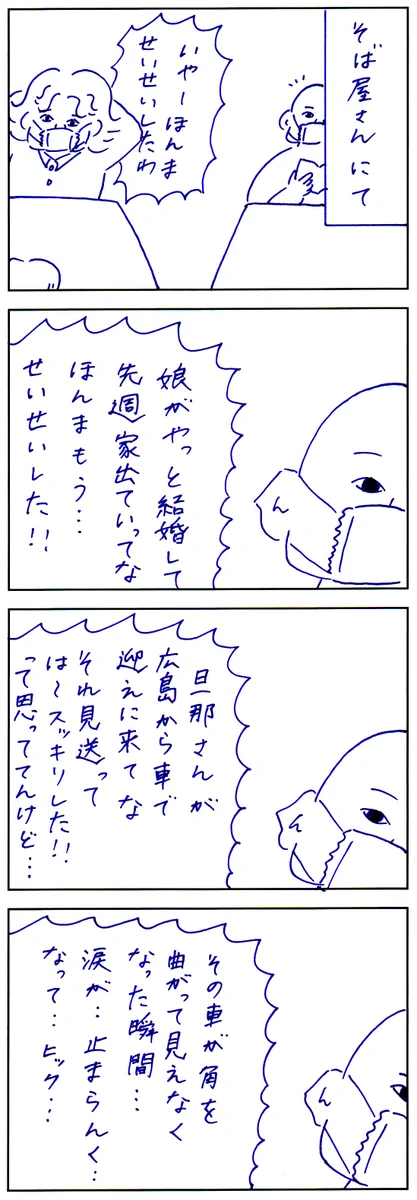 そば屋さんにて
いやーほんま
せいせいしたわ
娘がやっと結婚して
先週家出ていってな
ほんまもう…
せいせいした!!
ん
旦那さんが
広島から車で
迎えに来てな
それ見送って
は〜スッキリした!!
って思っててんけど…
ん
その車が角を
曲がって見えなく
なった瞬間…
涙が…止まらんく…
なって…ヒック…
ん